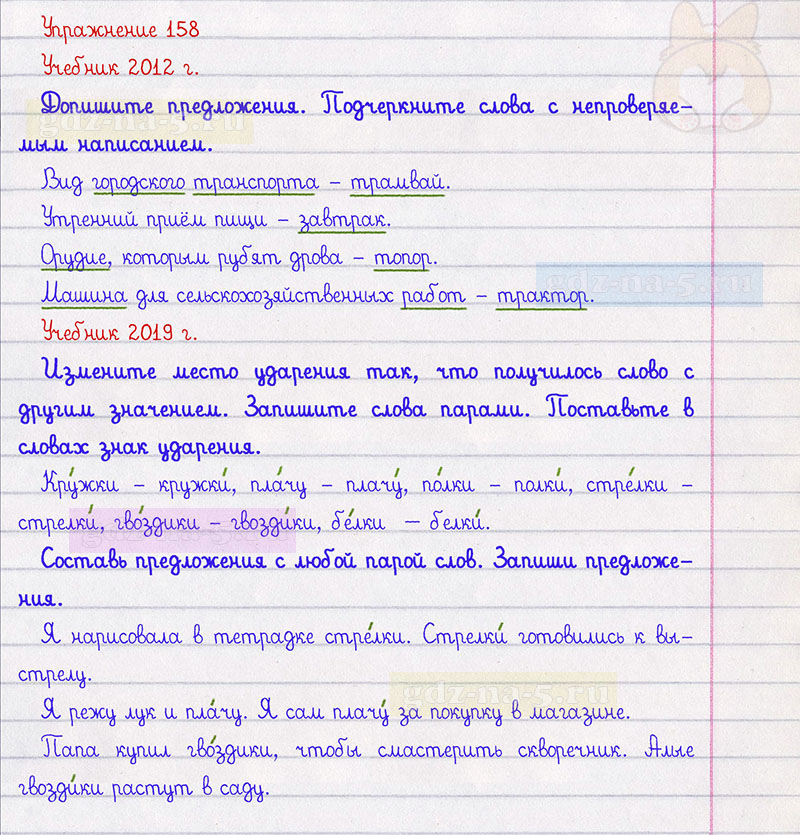 Упражнение 158
Учебник 2012 г.
Допишите предложения. Подчеркните слова с непроверяе-
мым написанием.
Вид городского транспорта – трамвай.
Утренний приём пищи – завтрак.
Орудие, которым рубят дрова – топор.
Машина для сельскохозяйственных работ – трактор.
Учебник 2019 г.
Измените место ударения так, что получилось слово с
другим значением. Запишите слова парами. Поставьте в
словах знак ударения.
Кру́жки – кружки́, пла́чу – плачу́, по́лки – полки́, стре́лки –
стрелки́, гво́здики – гвозди́ки, бе́лки — белки́.
Составь предложения с любой парой слов. Запиши предложе-
ния.
Я нарисовала в тетрадке стре́лки. Стрелки́ готовились к вы-
стрелу.
Я режу лук и пла́чу. Я сам плачу́ за покупку в магазине.
Папа купил гво́здики, чтобы смастерить скворечник. Алые
гвозди́ки растут в саду.
gdz-na-5.ru
gdz-na-5.ru
gdz-na-5.ru
gdz-na-5.ru